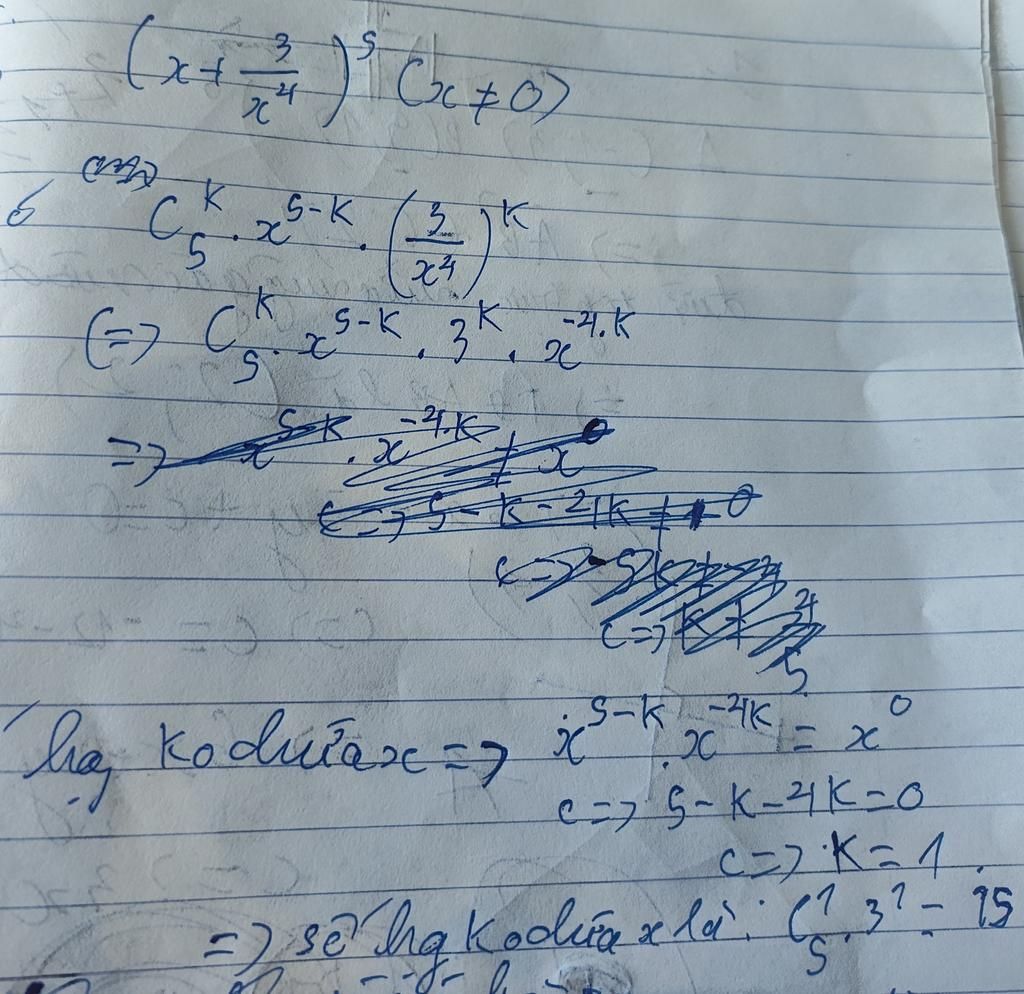 (x + 3/x^4)^5 (x ≠ 0)
C_5^k . x^{5-k} . (3/x^4)^k
(=> C_5^k . x^{5-k} . 3^k . x^{-4.k}
=> x^{5-k} . x^{-4.k} ≠ x^0
<=> 5-k-4k ≠ 0
hạng ko chứa x => x^{5-k} . x^{-4k} = x^0
<=> 5-k-4k=0
<=> k=1.
=> số hg ko chứa x là: C_5^1 . 3^1 = 15